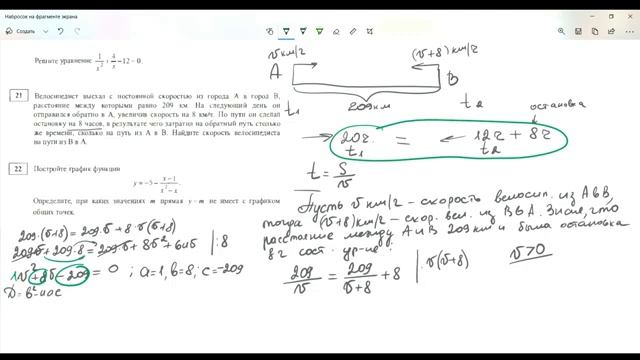 Набросок на фрагменте экрана
Создать
Решите уравнение 1/x² + 4/x − 12 = 0.
21 Велосипедист выехал с постоянной скоростью из города А в город В,
расстояние между которыми равно 209 км. На следующий день он
отправился обратно в А, увеличив скорость на 8 км/ч. По пути он сделал
остановку на 8 часов, в результате чего затратил на обратный путь столько
же времени, сколько на путь из А в В. Найдите скорость велосипедиста
на пути из В в А.
22 Постройте график функции
y = −5 − (x−1)/(x²−x).
Определите, при каких значениях m прямая y = m не имеет с графиком
общих точек.
209·(v+8) = 209·v + 8·v(v+8)
209v + 209·8 = 209·v + 8v² + 64v | :8
1v² + 8v − 209 = 0 ; a=1, b=8, c=−209
D = b²−4ac
v км/г (v+8) км/г
A B
209 км
t₁ t₂ остановка
20г. = 12г + 8г
t₁ t₂
t = S/v
Пусть v км/г – скорость велосип. из A в B,
тогда (v+8) км/г – скор. вел. из B в A. Зная, что
расстояние между A и B 209 км и была остановка
8 г сост. ур-ие:
209/v = 209/(v+8) + 8 | · v(v+8) v>0